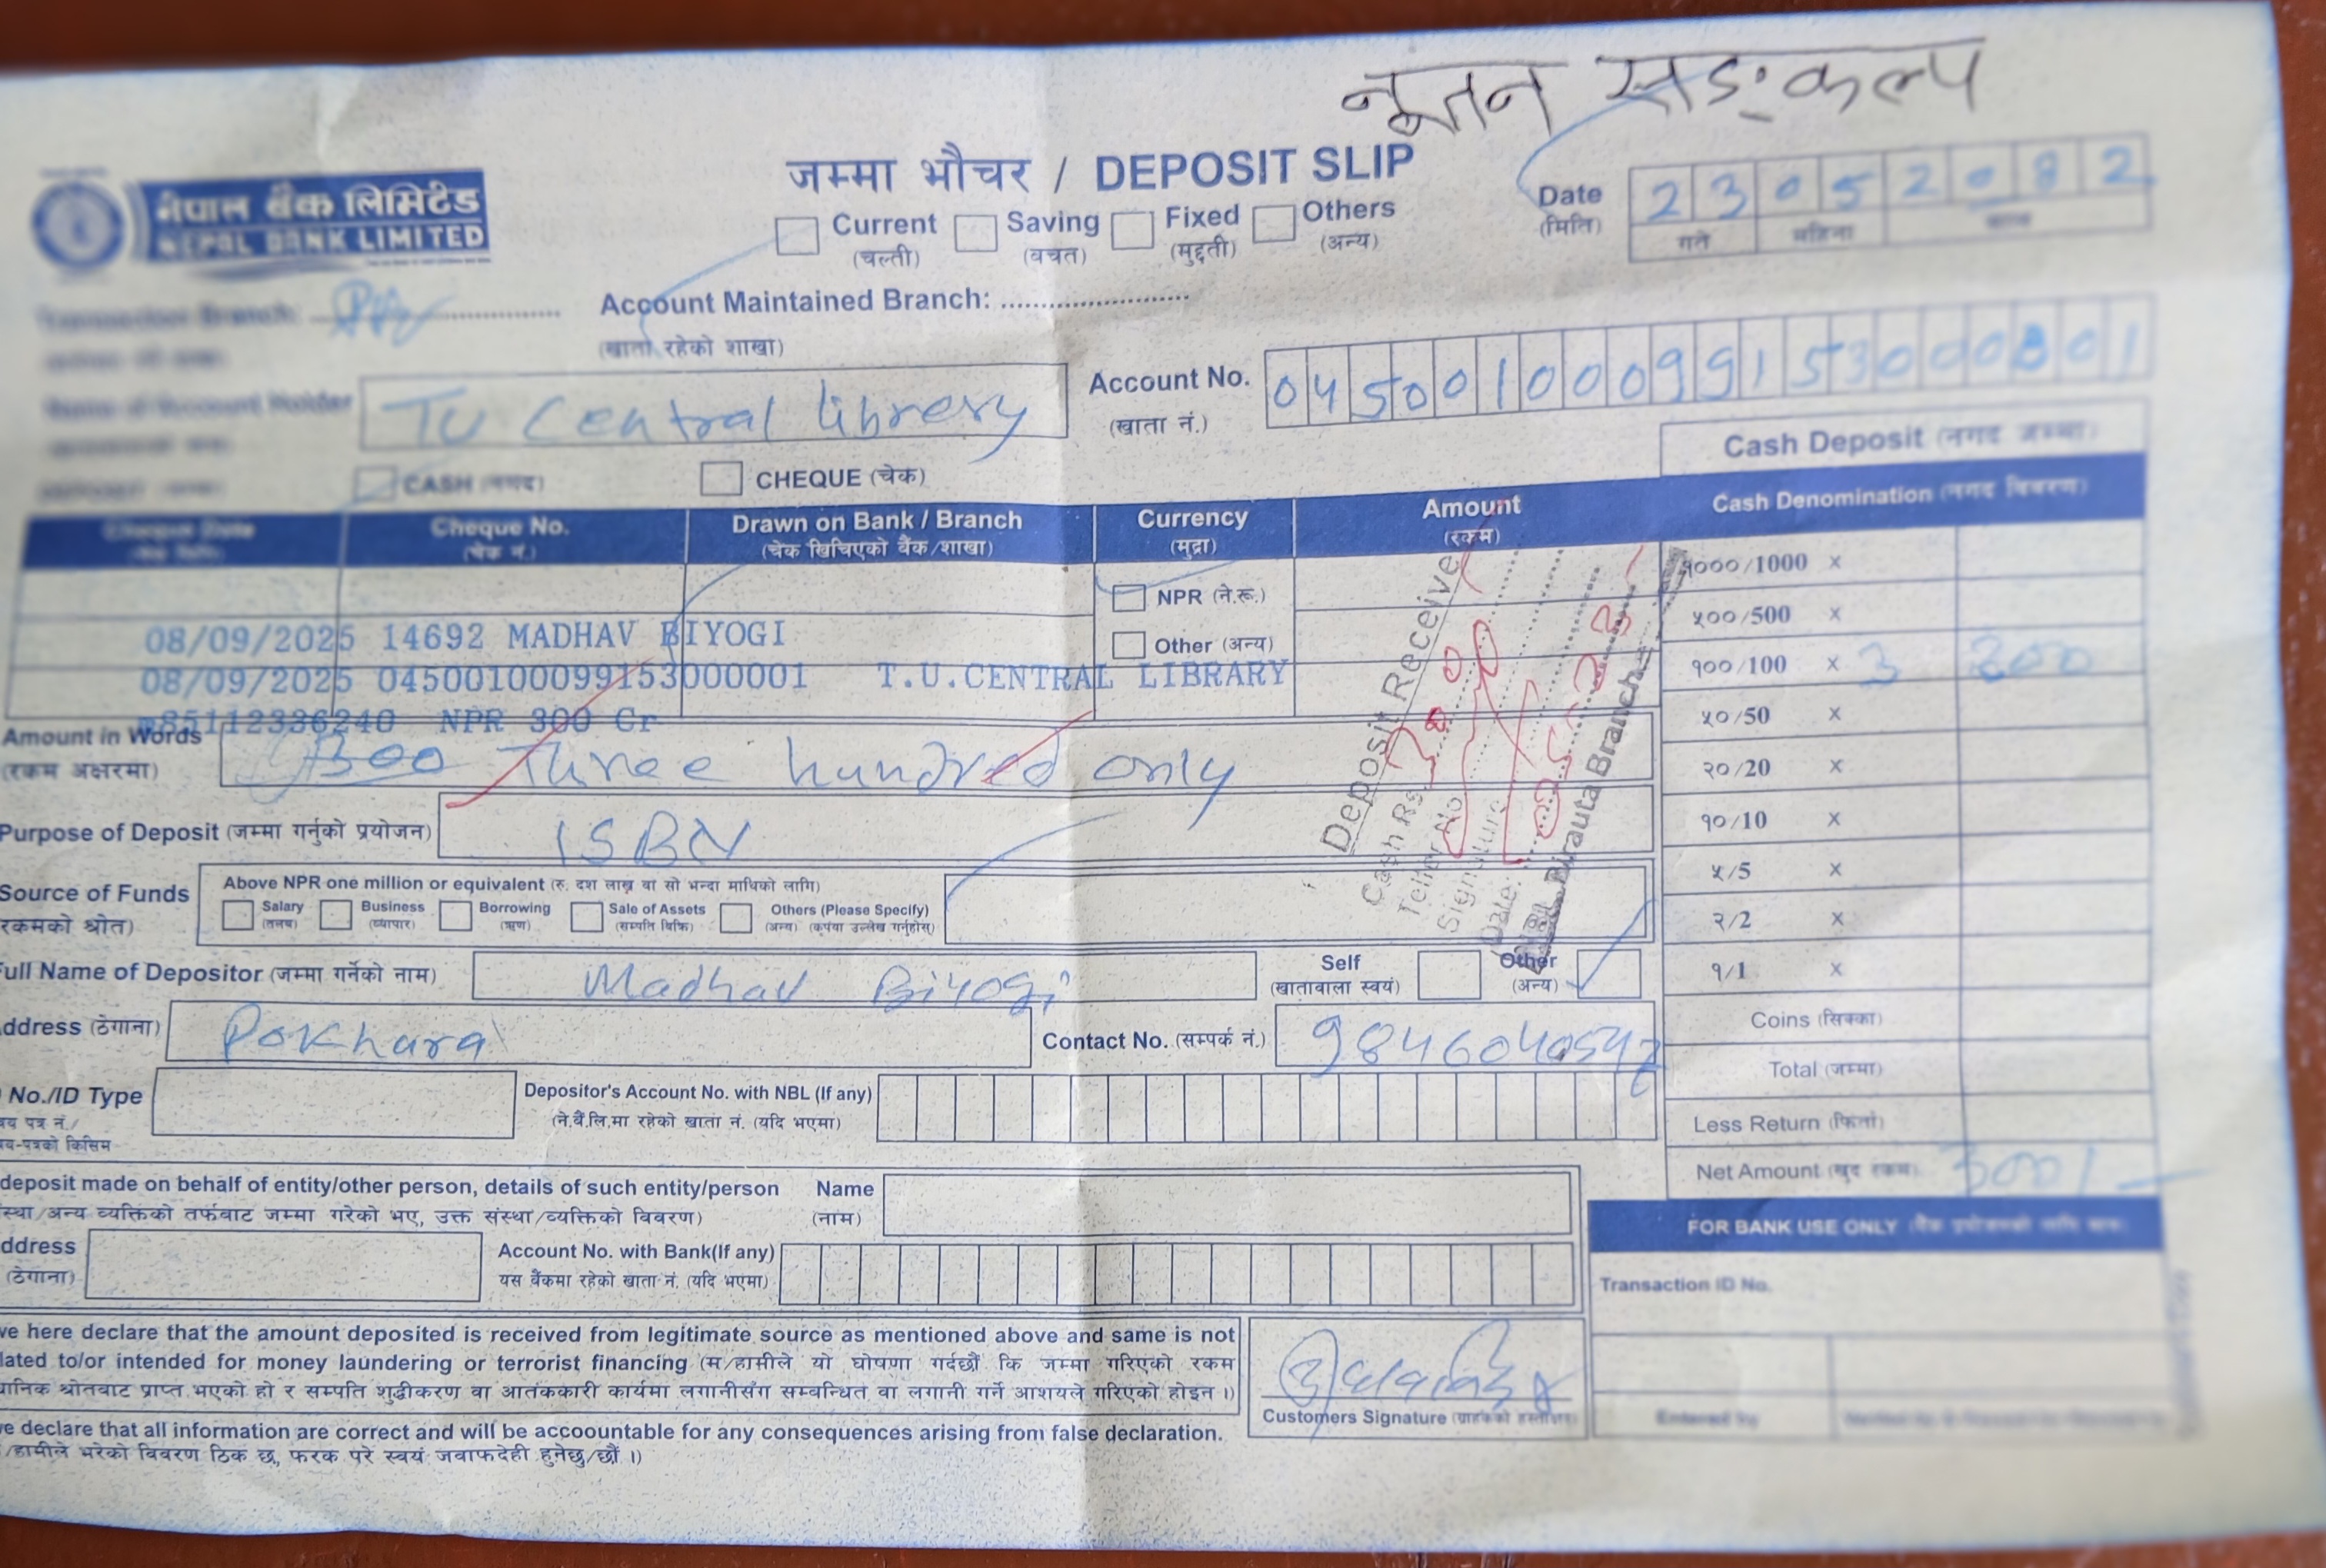 नूतन सङ्कल्प
नेपाल बैंक लिमिटेड
NEPAL BANK LIMITED
जम्मा भौचर / DEPOSIT SLIP
Current (चल्ती) Saving (बचत) Fixed (मुद्दती) Others (अन्य)
Date (मिति) 23 05 2082
गते महिना साल
Transaction Branch:
Account Maintained Branch:
(खाता रहेको शाखा)
Name of Account Holder TU Central library
Account No. (खाता नं.) 04500100099153000001
CASH (नगद) CHEQUE (चेक)
Cash Deposit (नगद जम्मा)
Cheque Date Cheque No. (चेक नं.) Drawn on Bank / Branch (चेक खिचिएको बैंक/शाखा) Currency (मुद्रा) Amount (रकम) Cash Denomination (नगद विवरण)
NPR (ने.रू.)
Other (अन्य)
१०००/1000 x
५००/500 x
१००/100 x 3 300
५०/50 x
२०/20 x
१०/10 x
५/5 x
२/2 x
१/1 x
Coins (सिक्का)
Total (जम्मा)
Less Return (फिर्ता)
Net Amount (खुद रकम) 300/-
08/09/2025 14692 MADHAV BIYOGI
08/09/2025 04500100099153000001 T.U.CENTRAL LIBRARY
85112336240 NPR 300 Cr
Deposit Received
Cash Rs.
Teller No
Signature
Date:
Birauta Branch
Amount in Words (रकम अक्षरमा) 300 Three hundred only
Purpose of Deposit (जम्मा गर्नुको प्रयोजन) ISBN
Source of Funds
रकमको श्रोत)
Above NPR one million or equivalent (रु. दश लाख वा सो भन्दा माथिको लागि)
Salary (तलब) Business (व्यापार) Borrowing (ऋण) Sale of Assets (सम्पति बिक्रि) Others (Please Specify) (अन्य) (कृपया उल्लेख गर्नुहोस्)
Full Name of Depositor (जम्मा गर्नेको नाम) Madhav Biyogi
Self (खातावाला स्वयं) Other (अन्य)
ddress (ठेगाना) Pokhara
Contact No. (सम्पर्क नं.)
No./ID Type
य पत्र नं./
य-पत्रको किसिम
Depositor's Account No. with NBL (If any)
(ने.बैं.लि.मा रहेको खाता नं. (यदि भएमा)
deposit made on behalf of entity/other person, details of such entity/person
स्था/अन्य व्यक्तिको तर्फबाट जम्मा गरेको भए, उक्त संस्था/व्यक्तिको विवरण)
Name (नाम)
ddress (ठेगाना)
Account No. with Bank(If any)
यस बैंकमा रहेको खाता नं. (यदि भएमा)
FOR BANK USE ONLY
Transaction ID No.
Entered by
ve here declare that the amount deposited is received from legitimate source as mentioned above and same is not
lated to/or intended for money laundering or terrorist financing (म/हामीले यो घोषणा गर्दछौं कि जम्मा गरिएको रकम
ानिक श्रोतबाट प्राप्त भएको हो र सम्पति शुद्धीकरण वा आतंककारी कार्यमा लगानीसंग सम्बन्धित वा लगानी गर्ने आशयले गरिएको होइन ।)
Customers Signature (ग्राहकको हस्ताक्षर)
ve declare that all information are correct and will be accoountable for any consequences arising from false declaration.
/हामीले भरेको विवरण ठिक छ, फरक परे स्वयं जवाफदेही हुनेछु/छौं ।)